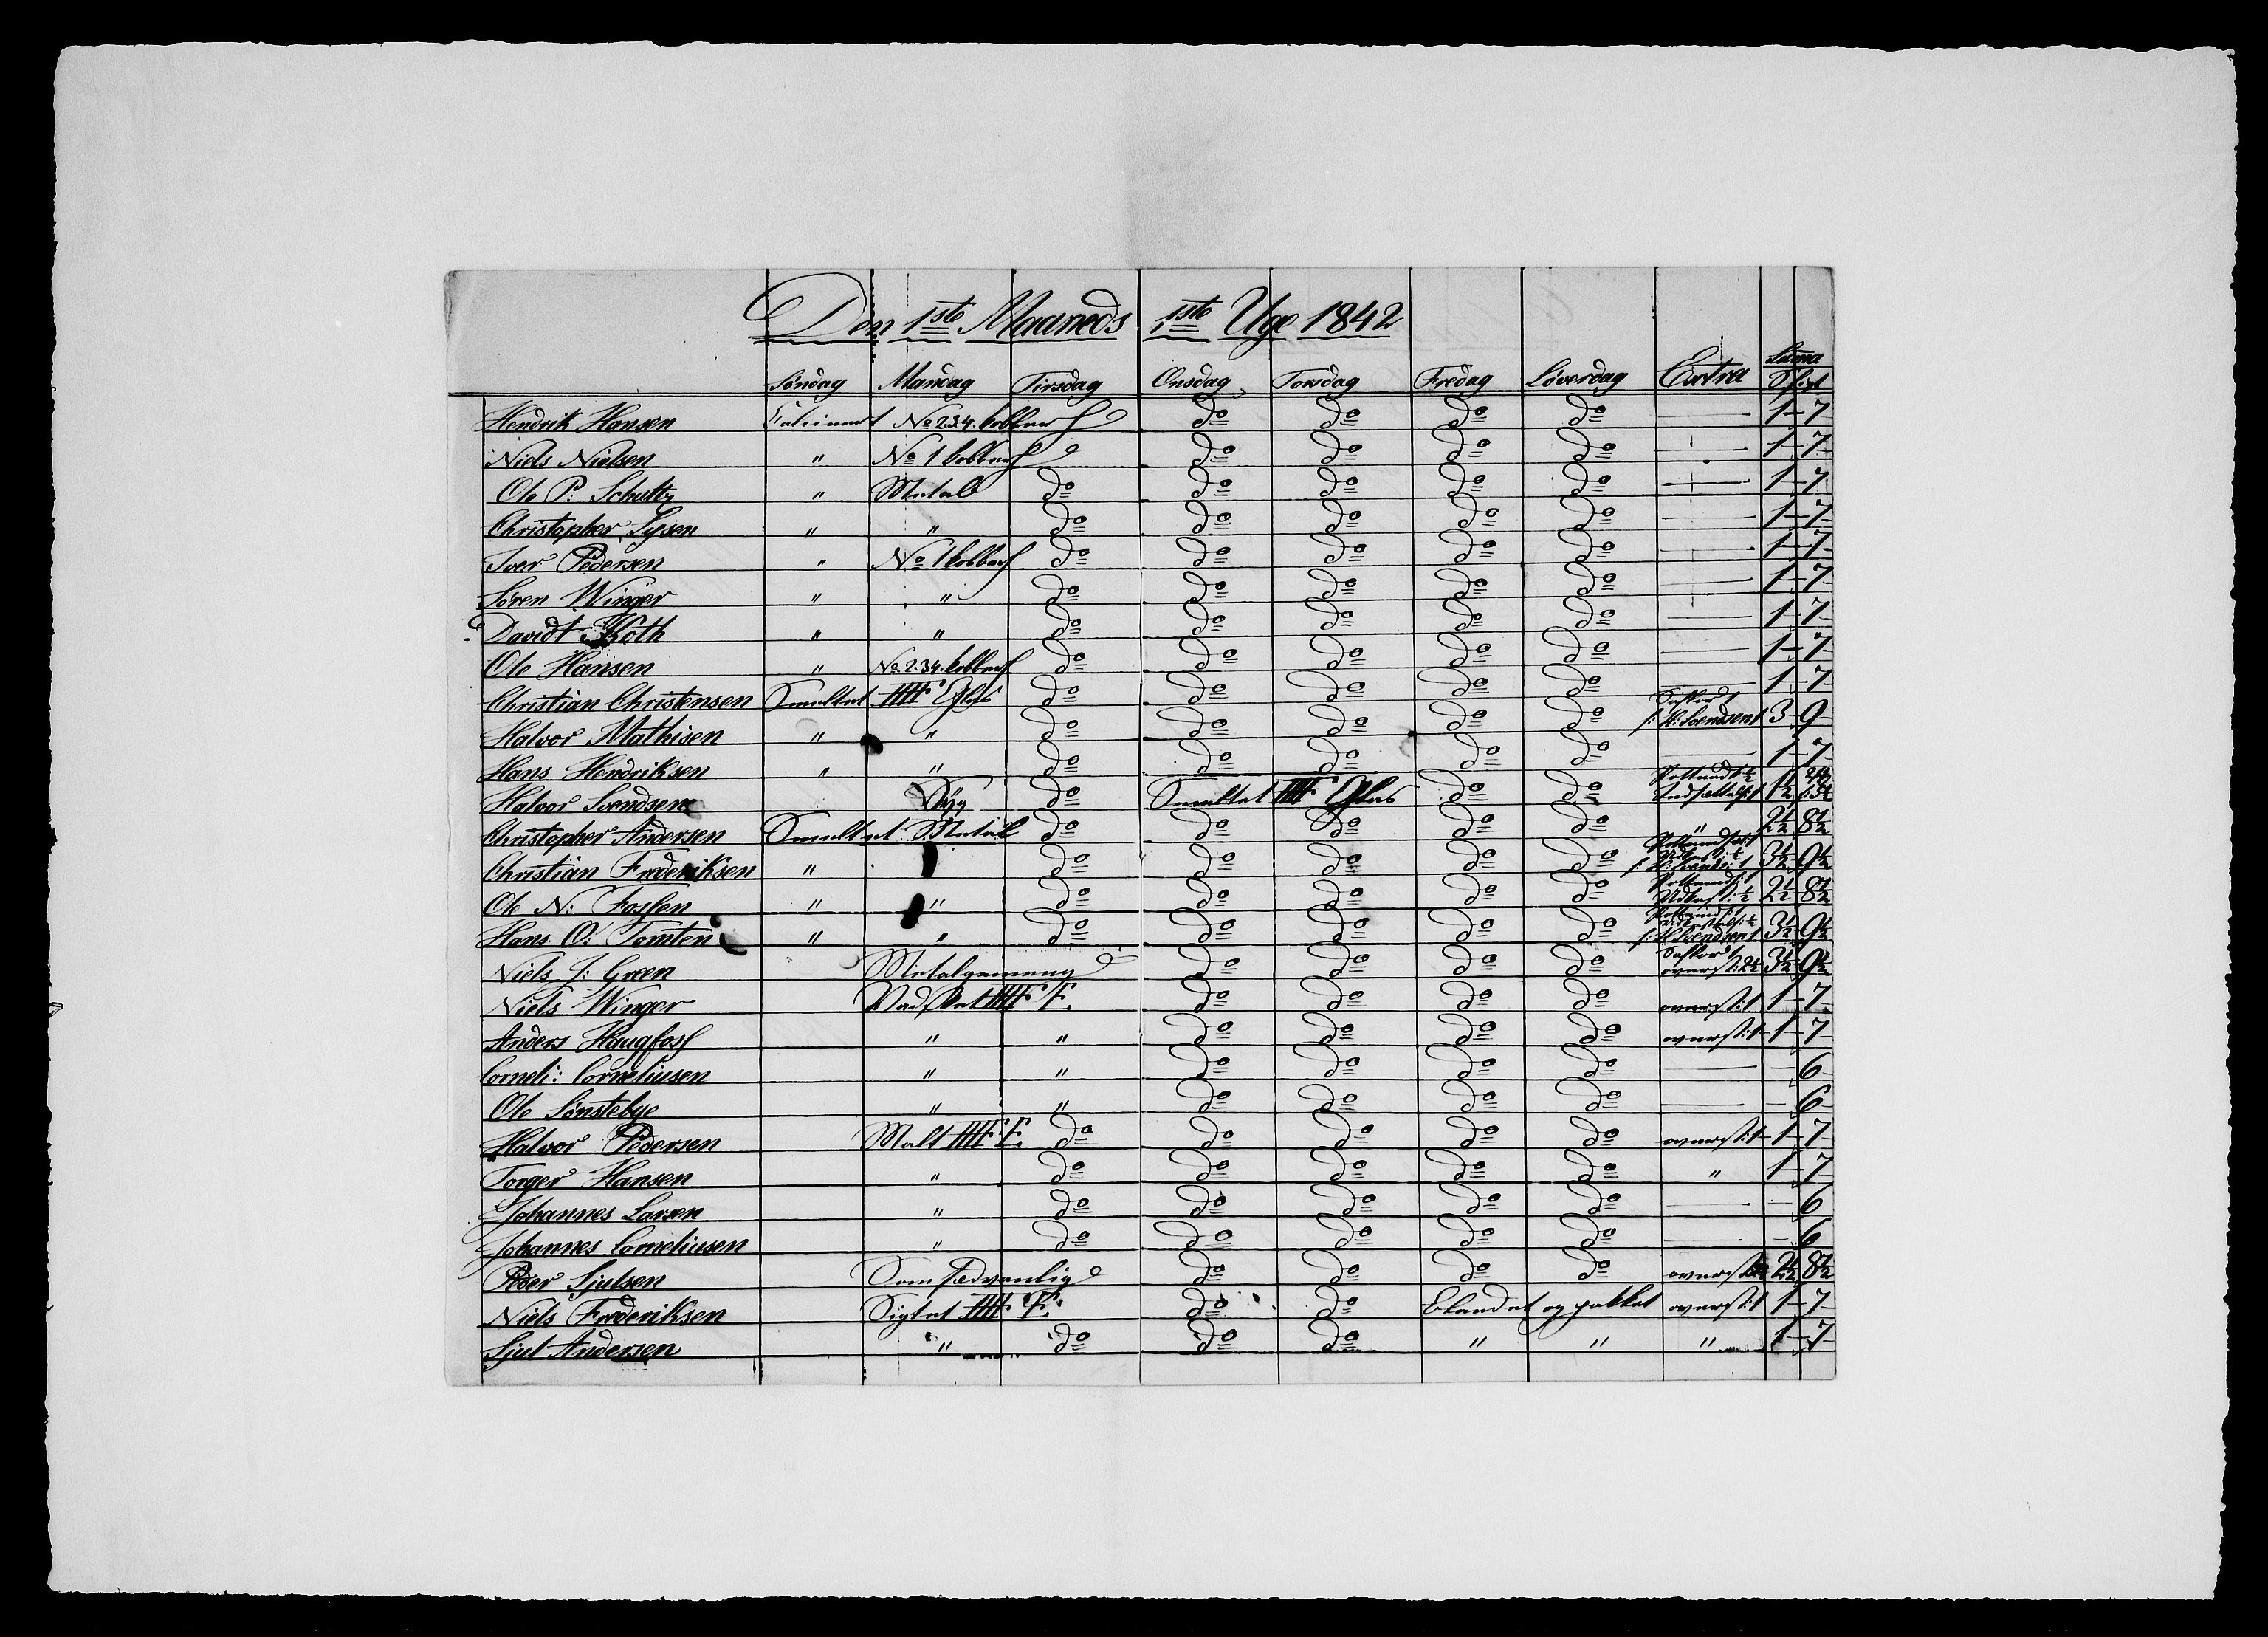 Den 1ste Maaneds 1ste Uge 1842
Søndag Mandag Tirsdag Onsdag Torsdag Fredag Løverdag Extra Summa
Hendrik Hansen Calcineret No 2.3.4. kobbolt do do do do — 1 – 7
Niels Nielsen " No 1 kobbolt do do do do — 1 – 7
Ole P: Schultz " Metal do do do do do — 1 – 7
Christopher Lysen " " do do do do do — 1 – 7
Iver Pedersen " No 1 kobbolt do do do do do — 1 – 7
Søren Winger " " do do do do do — 1 – 7
Davidt Koth " " do do do do do — 1 – 7
Ole Hansen " No. 2.3.4. kobbolt do do do do do — 1 – 7
Christian Christensen Smeltet FFFF Eglas do do do do do — 1 – 7
Halvor Mathisen " " do do do do do f: H: Svendsen 1 3 – 9
Hans Hendriksen " " do do do do do — 1 – 7
Halvor Svendsen Syg do Smeltet FFFF Eglas do do
Christopher Andersen Smeltet Metal do do do do do " 2½ 8½
Christian Frederiksen " do do do do do 3½ 9½
Ole N: Fossen " " do do do do do 2½ 8½
Hans O: Tomten " " do do do do do f: H Svendsen 1 3½ 9½
Niels J: Green Metalgemeng do do do do overst: 2½ 3½ 9½
Niels Winger Vadsket FFFF E. do do do do overst: 1 1 – 7
Anders Haugfoss " " do do do do overst: 1 1 – 7
Corneli: Corneliusen " " do do do do — – 6
Ole Sønstebye " " do do do do — – 6
Halvor Pedersen Malt FFFF E. do do do do do overst: 1 1 – 7
Torger Hansen " do do do do do " 1 – 7
Johannes Larsen " do do do do do — – 6
Johannes Corneliusen " do do do do do — – 6
Peder Sjulsen Som sædvanlig do do do do overst 2½ 8½
Niels Frederiksen Sigtet FFFF E. do do blandet og pakket overst: 1 1 – 7
Sjul Andersen " do do do " " " 1 – 7